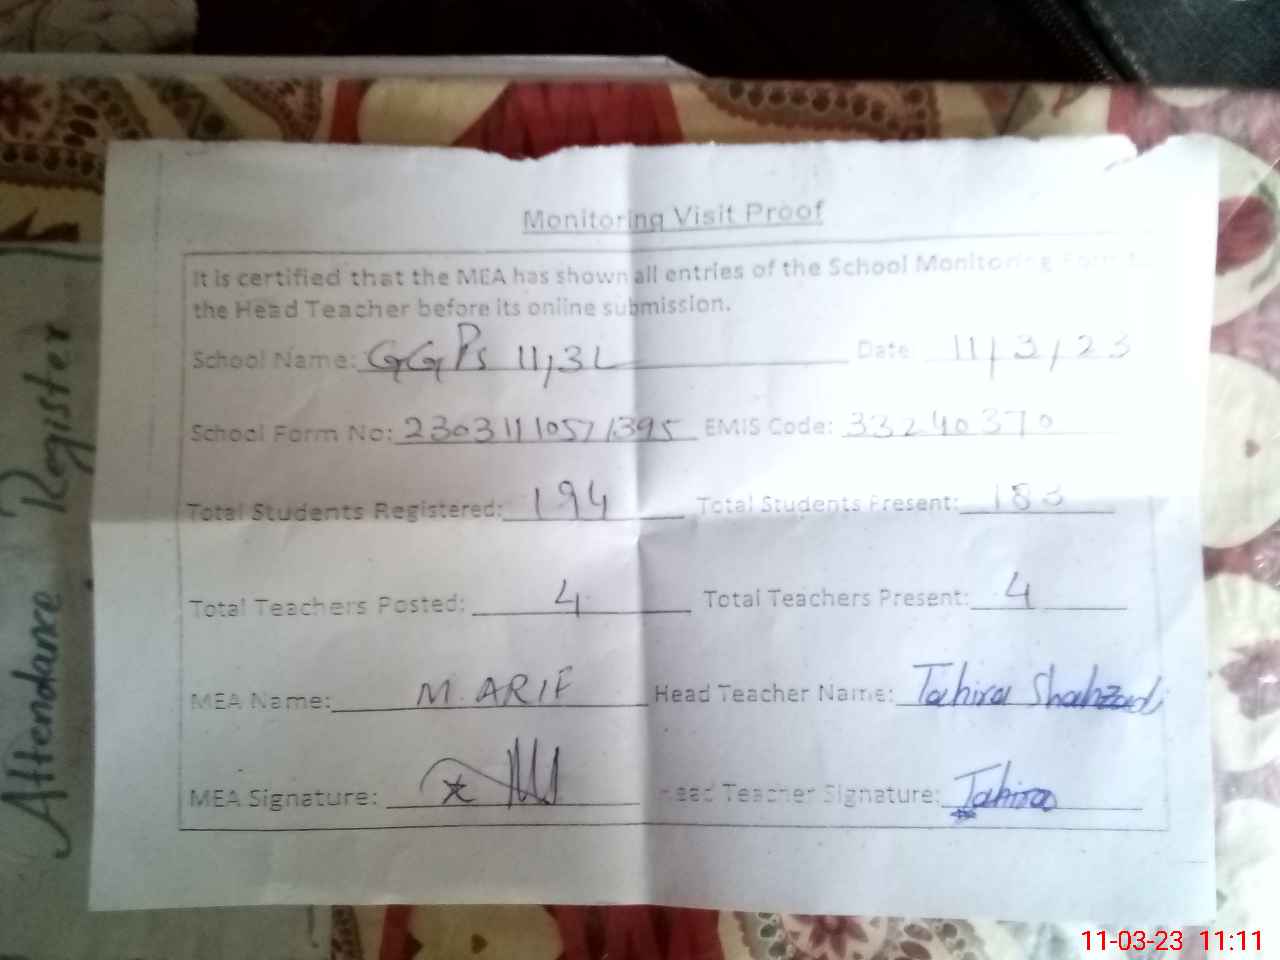 Monitoring Visit Proof
It is certified that the MEA has shown all entries of the School Monitoring Form to
the Head Teacher before its online submission.
School Name: GGPS 11,3L Date 11/3/23
School Form No: 23031110571395 EMIS Code: 33240370
Total Students Registered: 194 Total Students Present: 183
Total Teachers Posted: 4 Total Teachers Present: 4
MEA Name: M. ARIF Head Teacher Name: Tahira Shahzadi
MEA Signature: Head Teacher Signature: Tahira
Attendance Register
11-03-23 11:11